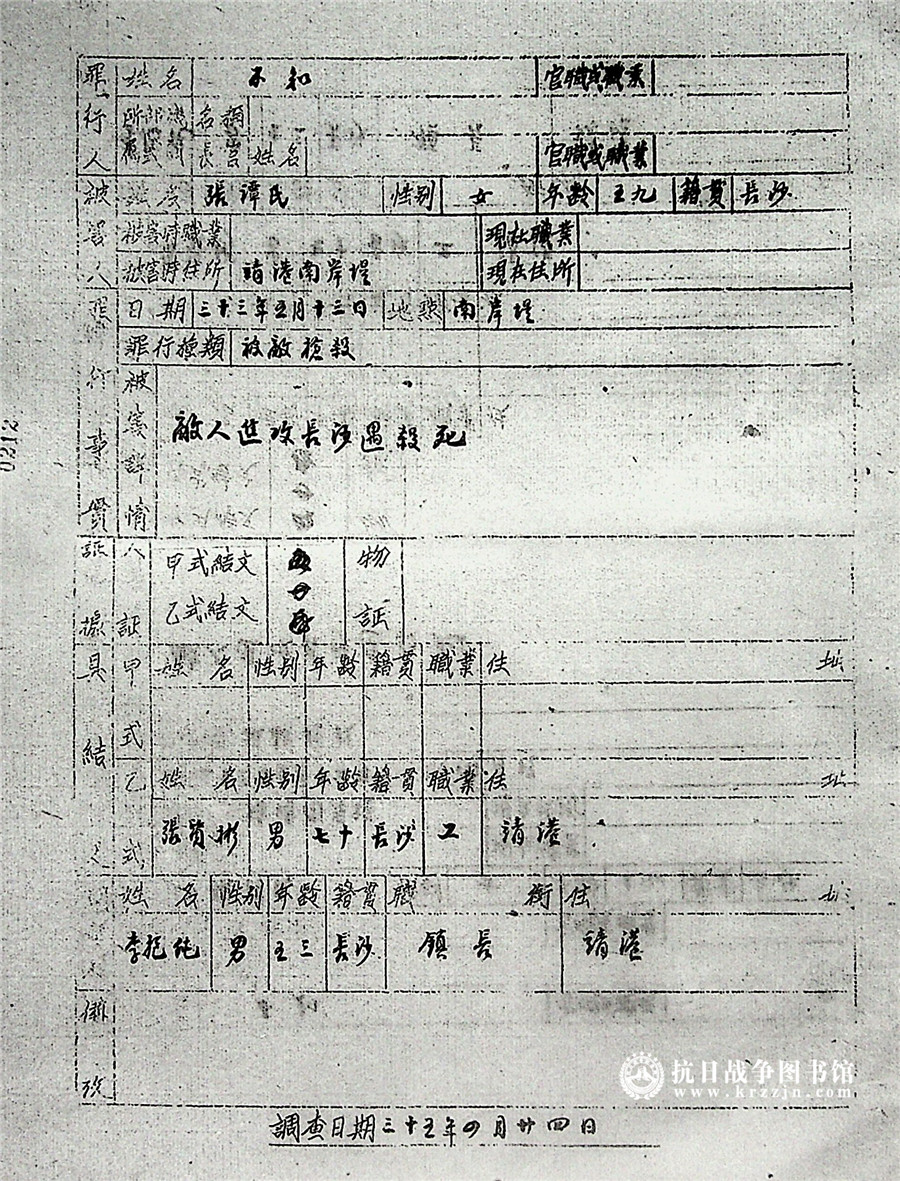 罪行人 姓名 不知 官職或職業
名稱
長官 姓名 官職或職業
被害人 姓名 張諱民 性别 女 年齡 五九 籍貫 長沙
被害時職業 現在職業
被害時住所 靖港南岸堤 現在住所
罪行事實 日期 三十三年五月十三日 地點 南岸堤
罪行種類 被敵槍殺
被害詳情 敵人進攻長沙遇殺死
証據 人証 甲式結文 物証
乙式結文
具結 甲式 姓名 性别 年齡 籍貫 職業 住址
乙式 姓名 性别 年齡 籍貫 職業 住址
張賢彬 男 七十 長沙 工 靖港
姓名 性别 年齡 籍貫 職銜 住址
李抱純 男 五三 長沙 鎮長 靖港
備攷
調查日期三十五年四月廿四日
0212
抗日战争图书馆
www.krzzjn.com